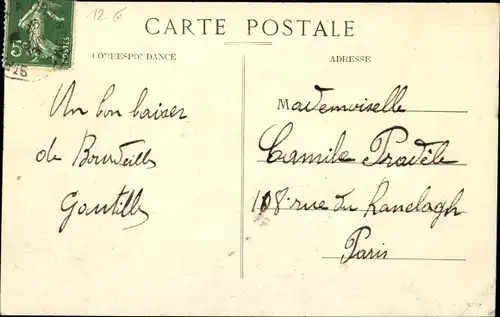 12 €
CARTE POSTALE
CORRESPONDANCE
ADRESSE
Un bon baiser
de
Mademoiselle
Camile Pradèle
108 rue du Ranelagh
Paris